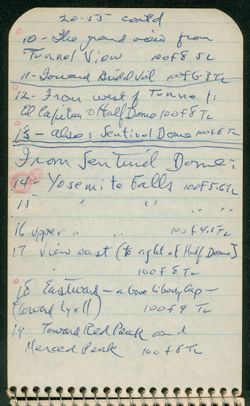 20-55 contd
10 - The grand view from
Tunnel View 100 f8 .5L
11 - Toward Bridalveil 100 f6.3 TL
12 - From west of Tunnel:
El Capitan & Half Dome 100 f8 TL
13 - also: Sentinel Dome 100 f8 TL
From Sentinel Dome:
14 - Yosemite Falls 100 f5.6 TL
15 " " "
16 upper " " 100 f4.5 TL
17 view east (to right of Half Dome)
100 f8 TL
18 Eastward - Liberty Cap -
(toward Lyell) 100 f9 TL
19 Toward Red Peak and
Merced Peak 100 f8 TL